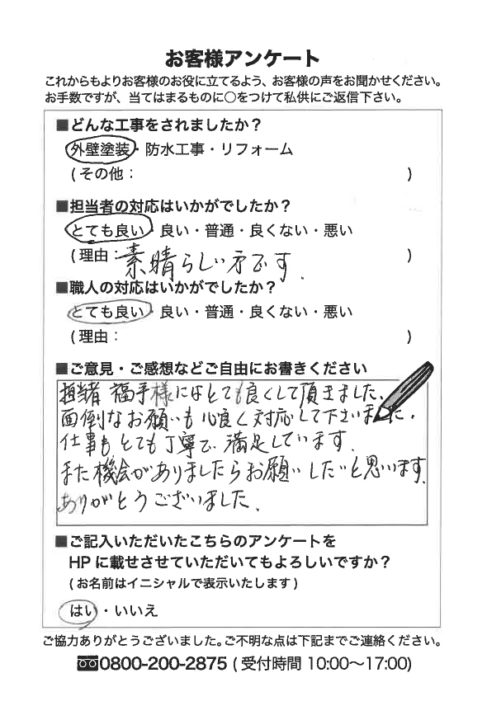 お客様アンケート
これからもよりお客様のお役に立てるよう、お客様の声をお聞かせください。
お手数ですが、当てはまるものに〇をつけて私供にご返信下さい。
■どんな工事をされましたか？
外壁塗装・防水工事・リフォーム
(その他： )
■担当者の対応はいかがでしたか？
とても良い・良い・普通・良くない・悪い
(理由： )
素晴らしい方です.
■職人の対応はいかがでしたか？
とても良い・良い・普通・良くない・悪い
(理由： )
■ご意見・ご感想などご自由にお書きください
担当者 福手様にはとても良くして頂きました.
面倒なお願いも心良く対応して下さいました.
仕事もとても丁寧で 満足しています.
また機会がありましたらお願いしたいと思います.
ありがとうございました.
■ご記入いただいたこちらのアンケートを
HPに載せさせていただいてもよろしいですか？
(お名前はイニシャルで表示いたします)
はい・いいえ
ご協力ありがとうございました。ご不明な点は下記までご連絡ください。
0800-200-2875 (受付時間 10:00～17:00)